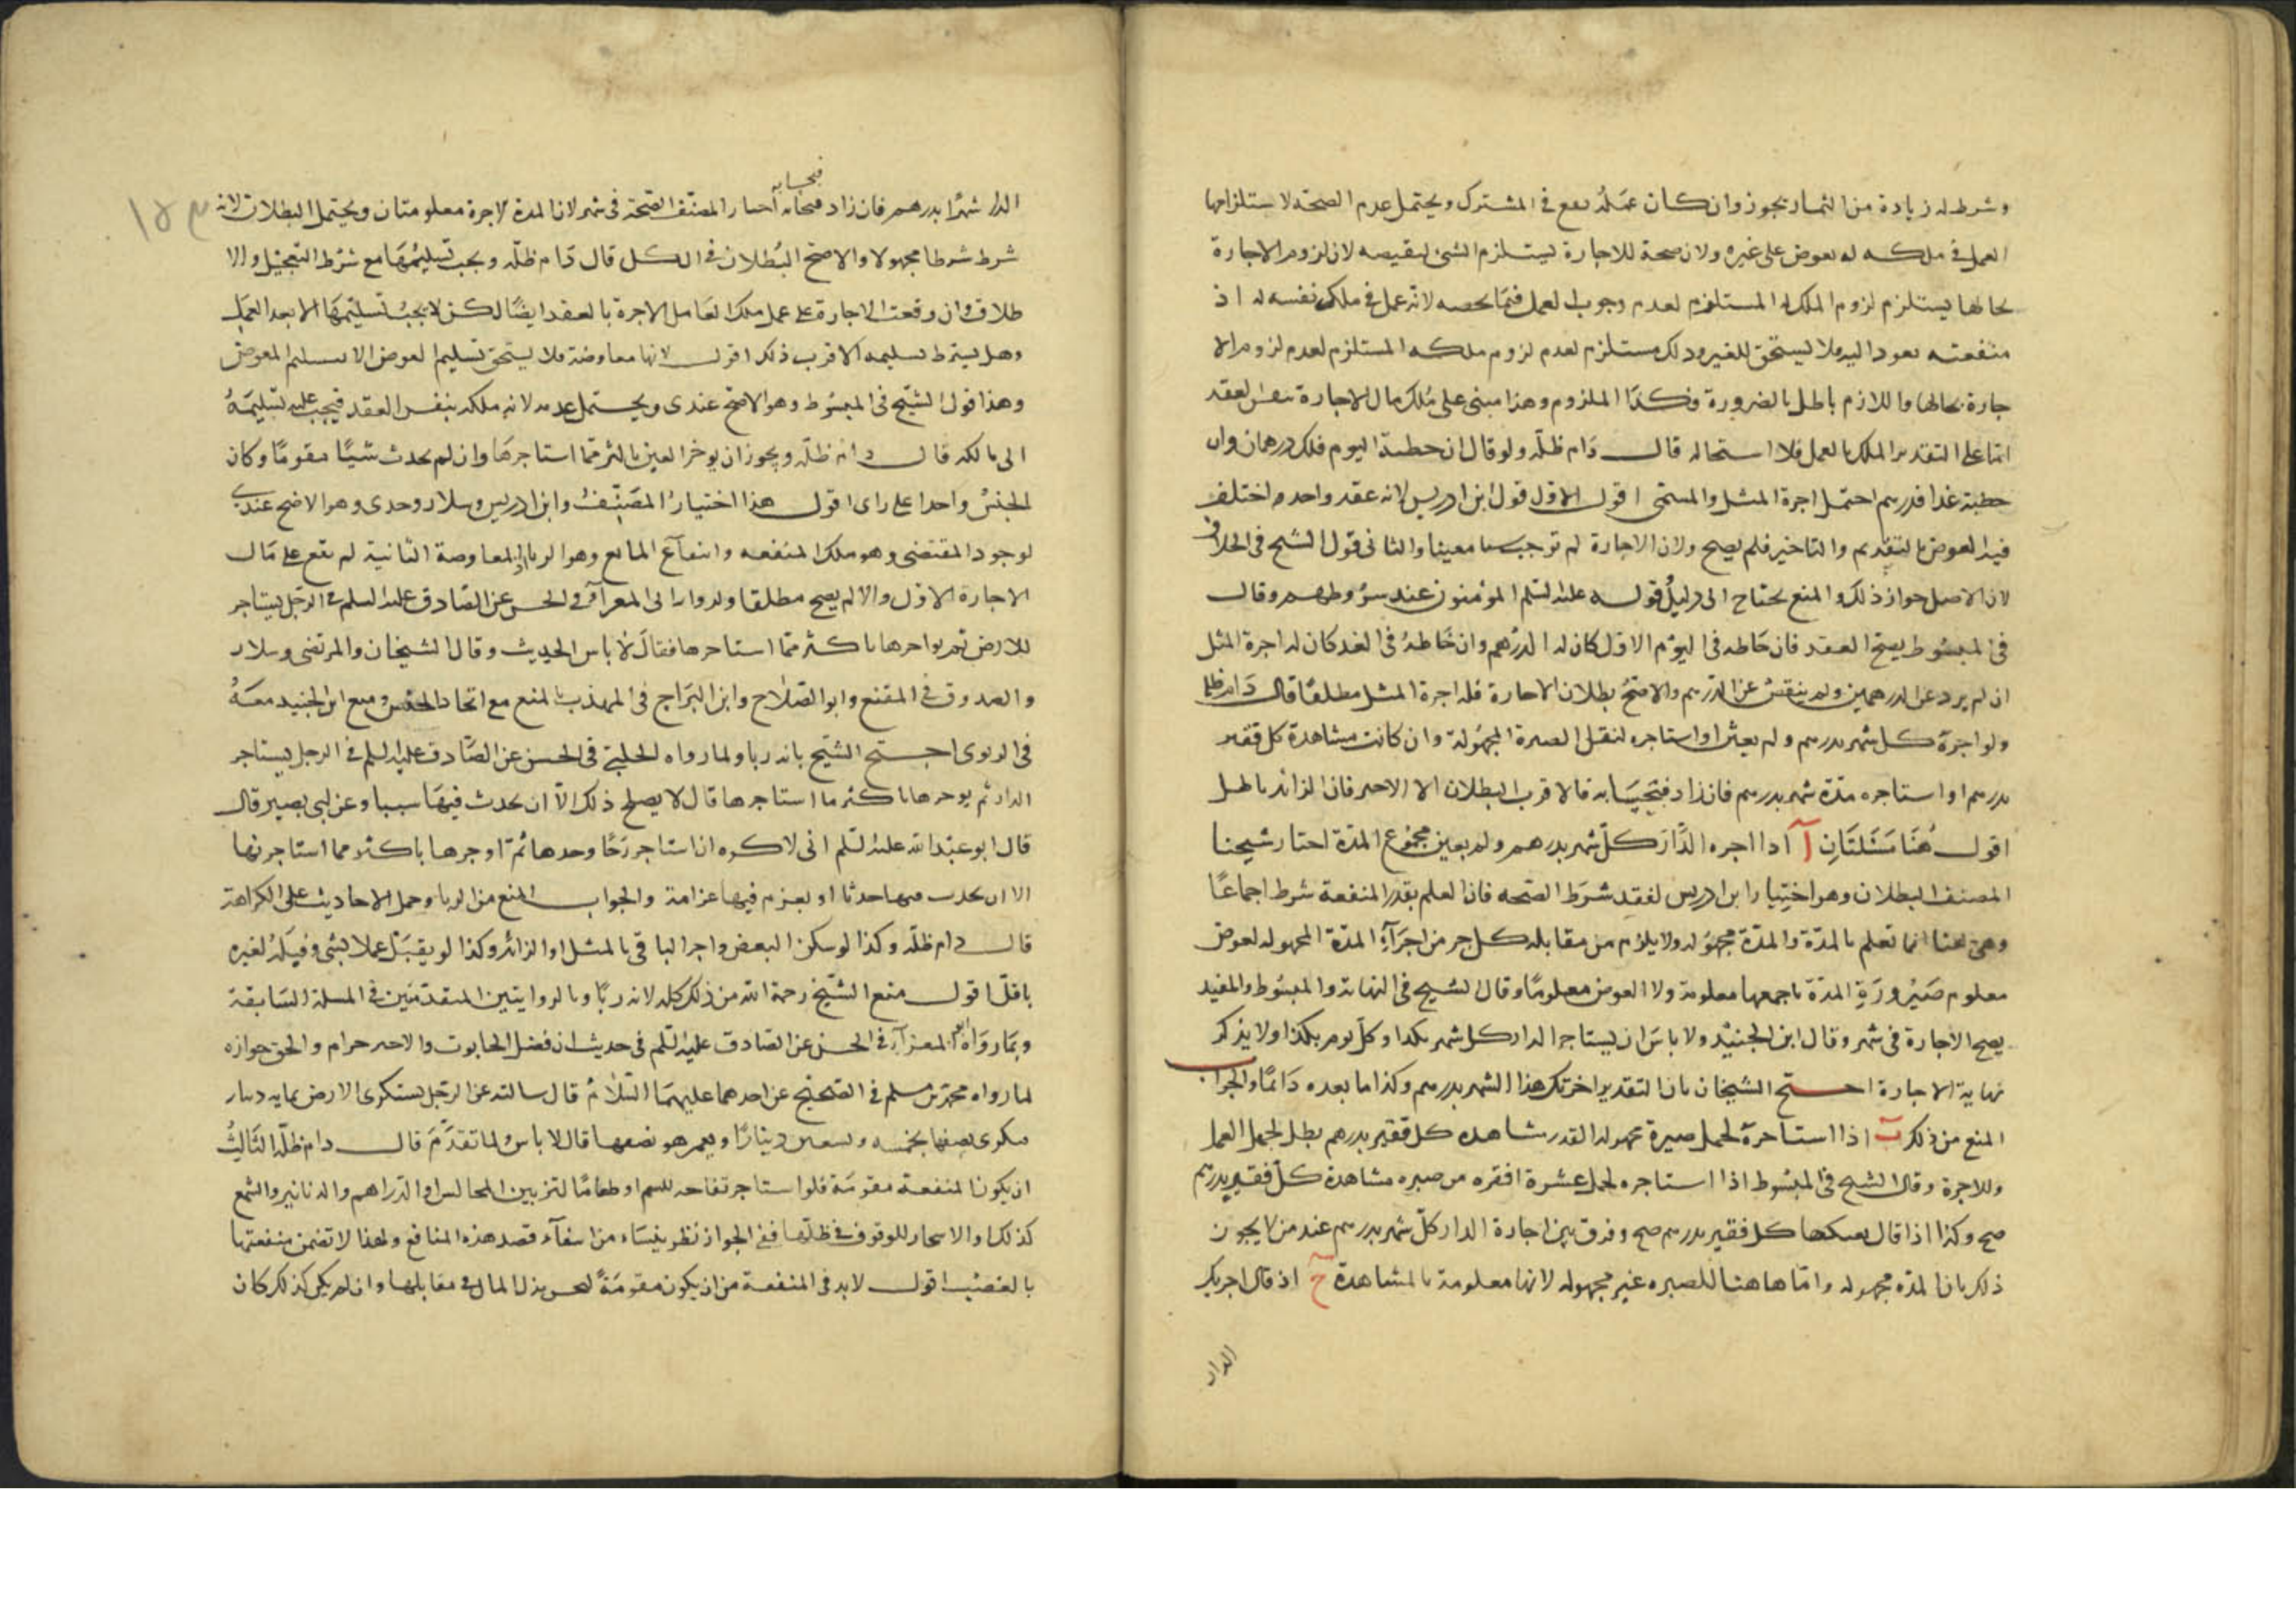 وشرط له زيادة من الثمار يجوز وان كان عمله يقع فى المشترك ويحتمل عدم الصحة لاستلزامها
العمل فى ملكه له بعوض على غيره ولان صحة للاجارة يستلزم الشئ لنقيضه لان لزوم الاجارة
بحالها يستلزم لزوم الملك المستلزم لعدم وجوب العمل فيما يخصه لانه عمل فى ملك نفسه له اذ
منفعته يعود اليه فلا يستحق للغير وذلك مستلزم لعدم لزوم ملكه المستلزم لعدم لزوم الا
جارة بحالها واللازم باطل بالضرورة فكذا الملزوم وهذا مبنى على ملك مال الاجارة بنفس العقد
اما على التقدير الملك بالعمل فلا استحالة قال دام ظله ولو قال ان خطته اليوم فلك درهمان وان
خطته غدا فدرهم احتمل اجرة المثل والمسمى اقول الاول قول ابن ادريس لانه عقد واحد اختلف
فيه العوض بالتقديم والتاخير فلم يصح ولان الاجارة لم توجب معينا والثانى قول الشيخ فى الخلاف
لان الاصل جواز ذلك والمنع يحتاج الى دليل قوله عليه السلم المؤمنون عند شروطهم وقال
فى المبسوط يصح العقد فان خاطه فى اليوم الاول كان له الدرهم وان خاطه فى الغد كان له اجرة المثل
ان لم يزد عن الدرهمين ولم ينقص عن الدرهم والاصح بطلان الاجارة فله اجرة المثل مطلقا قال دام ظله
ولو اجرة كل شهر بدرهم ولم يعين او استاجره لنقل الصبرة المجهولة وان كانت مشاهدة كل قفيز
بدرهم او استاجره مدة شهر بدرهم فان زاد فبحسابه فالاقرب البطلان الا الاخير فان الزائد باطل
اقول هنا مسئلتان آ اذا اجره الدار كل شهر بدرهم ولم يعين مجموع المدة اختار شيخنا
المصنف البطلان وهو اختيار ابن ادريس لفقد شرط الصحه فان العلم بقدر المنفعة شرط اجماعا
وهى هنا انما تعلم بالمدة والمدة مجهوله ولا يلزم من مقابله كل جزء من اجزاء المدة المجهوله لعوض
معلوم صيرورة المدة باجمعها معلومة ولا العوض معلوما وقال الشيخ فى النهاية والمبسوط والمفيد
يصح الاجارة فى شهر وقال ابن الجنيد ولا باس ان يستاجر الدار كل شهر بكذا وكل يوم بكذا ولا يذكر
نهاية الاجارة احتج الشيخان بان التقدير اخرتك هذا الشهر بدرهم وكذا ما بعده دائما والجواب
المنع من ذلك ب اذا استاجرة لحمل صبرة مجهوله القدر مشاهده كل قفيز بدرهم بطل لجهل العمل
وللاجرة وقال الشيخ فى المبسوط اذا استاجره لحمل عشرة اقفزه من صبره مشاهدة كل قفيز بدرهم
صح وكذا اذا قال كل قفيز بدرهم صح وفرق بين اجارة الدار كل شهر بدرهم عند من لا يجوز
ذلك بان المده مجهوله واما هاهنا للصبره غير مجهوله لانها معلومة بالمشاهدة ج اذ قال اجرتك
الدار
فبحسابه
الدار شهرا بدرهم فان زاد فبحسابه اختار المصنف الصحة فى شهر لان المدة والاجرة معلومتان ويحتمل البطلان لانه
١٥٣
شرط شرطا مجهولا والاصح البطلان فى الكل قال دام ظله ويجب تسليمها مع شرط التعجيل والا
طلاق وان وقعت الاجارة على عمل ملك العامل الاجرة بالعقد ايضا لكن لا يجب تسليمها الا بعد العمل
وهل يشترط تسليمه الاقرب ذلك اقول لانها معاوضة فلا يستحق تسليم العوض الا بتسليم المعوض
وهذا قول الشيخ فى المبسوط وهو الاصح عندى ويحتمل عدمه لانه ملكه بنفس العقد فيجب عليه تسليمه
الى مالكه قال دام ظله ويجوز ان يوخر العين باكثر مما استاجرها وان لم يحدث شيئا مقوما وكان
الجنس واحدا على راى اقول هذا اختيار المصنف وابن ادريس وسلار وحدى وهو الاصح عندى
لوجود المقتضى وهو ملك المنفعه وانتفاء المانع وهو الربا اذ المعاوضة الثانية لم تقع على مال
الاجارة الاول والا لم يصح مطلقا ولروا ابى المعزآ فى الحسن عن الصادق عليه السلم فى الرجل يستاجر
للارض ثم يواجرها باكثر مما استاجرها فقال لا باس الحديث وقال الشيخان والمرتضى وسلار
والصدوق فى المقنع وابو الصلاح وابن البراج فى المهذب بالمنع مع اتحاد الجنس ومنع ابن الجنيد معه
فى الربوى احتج الشيخ بانه ربا ولما رواه الحلبى فى الحسن عن الصادق عليه السلم فى الرجل يستاجر
الدار ثم يوجرها باكثر مما استاجرها قال لا يصلح ذلك الا ان يحدث فيها سببا وعن ابى بصير قال
قال ابو عبد الله عليه السلم انى لاكره ان استاجر رحا وحدها ثم اوجرها باكثر مما استاجرتها
الا ان يحدث فيها حدثا او يعزم فيها عزامة والجواب المنع من الربا وحمل الاحاديث على الكراهة
قال دام ظله وكذا لو سكن البعض واجر الباقى بالمثل او الزائد وكذا لو يقبل عملا بشى وقبله لغيره
باقل اقول منع الشيخ رحمة الله من ذلك كله لانه ربا وبالروايتين المتقدمتين فى المسلة السابقة
وبما رواه ابى المعزآ فى الحسن عن الصادق عليه السلم فى حديث ان فضل الحانوت والاجير حرام والحق جوازه
لما رواه محمد بن مسلم فى الصحيح عن احدهما عليهما السلام قال سالته عن الرجل يستكرى الارض بمايه دينار
فيكرى نصفها بخمسه وتسعين دينارا ويعمر هو نصفها قال لا باس ولما تقدم قال دام ظله الثالث
ان يكون المنفعة مقومة فلو استاجر تفاحه للشم او طعاما لتزيين المجالس او الدراهم والدنانير والشمع
كذلك او الاشجار للوقوف فى ظلها ففى الجواز نظر ينشاء من انتفآء قصد هذه المنافع ولهذا لا تضمن منفعتها
بالغصب اقول لابد فى المنفعة من ان يكون مقومة ليحسن بذل المال فى مقابلها وان لم يكن كذلك كان